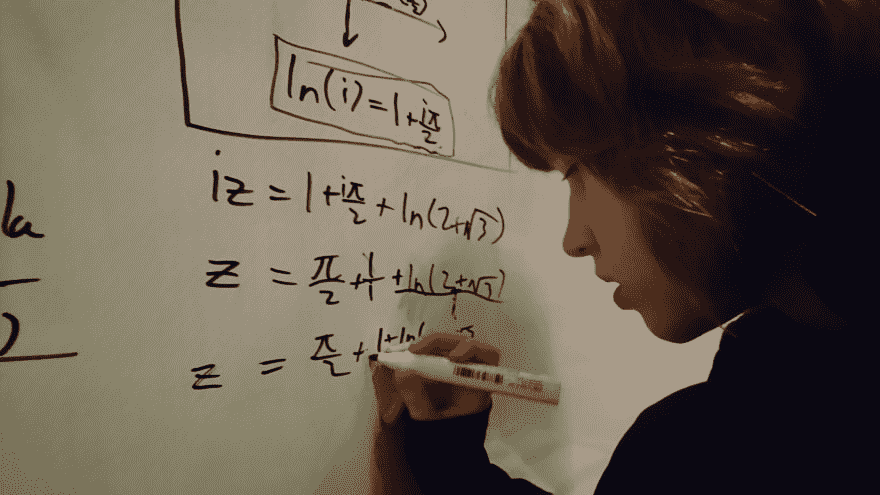 ln(i) = 1 + iπ/2
iz = 1 + iπ/2 + ln(2+√3)
z = π/2 + 1/i + ln(2+√3)/i
z = π/2 + 1+ln(